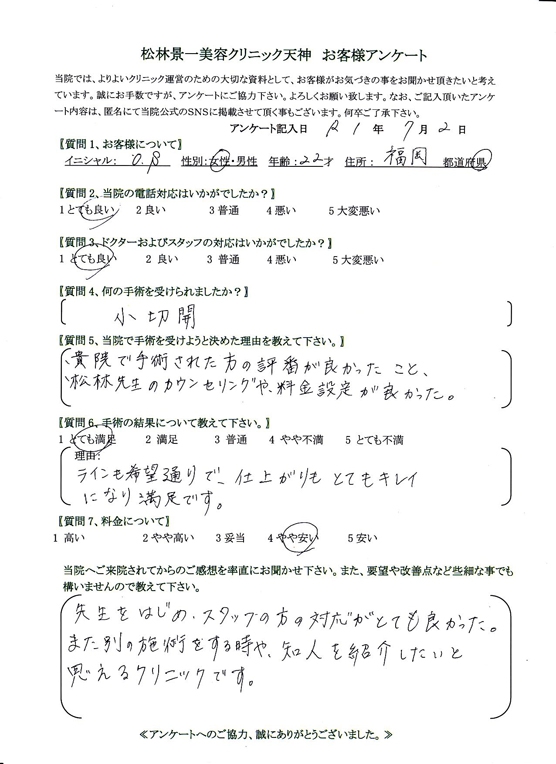 松林景一美容クリニック天神 お客様アンケート
当院では、よりよいクリニック運営のための大切な資料として、お客様がお気づきの事をお聞かせ頂きたいと考え
ています。誠にお手数ですが、アンケートにご協力下さい。よろしくお願い致します。なお、ご記入頂いたアンケ
ート内容は、匿名にて当院公式のSNSに掲載させて頂く事もございます。何卒ご了承下さい。
アンケート記入日 R1年 7月2日
〖質問1、お客様について〗
イニシャル: O.B 性別:女性・男性 年齢:22才 住所: 福岡 都道府県
〖質問2、当院の電話対応はいかがでしたか?〗
1とても良い 2良い 3普通 4悪い 5大変悪い
〖質問3、ドクターおよびスタッフの対応はいかがでしたか?〗
1 とても良い 2 良い 3 普通 4悪い 5大変悪い
〖質問4、何の手術を受けられましたか?〗
小切開
〖質問5、当院で手術を受けようと決めた理由を教えて下さい。〗
・貴院で手術された方の評番が良かったこと、
・松林先生のカウンセリングや、料金設定が良かった。
〖質問6、手術の結果について教えて下さい。〗
1 とても満足 2 満足 3 普通 4 やや不満 5 とても不満
理由:
ラインも希望通りで、仕上がりもとてもキレイ
になり満足です。
〖質問7、料金について〗
1 高い 2やや高い 3妥当 4やや安い 5安い
当院へご来院されてからのご感想を率直にお聞かせ下さい。また、要望や改善点など些細な事でも
構いませんので教えて下さい。
先生をはじめ、スタッフの方の対応がとても良かった。
また別の施術をする時や、知人を紹介したいと
思えるクリニックです。
≪アンケートへのご協力、誠にありがとうございました。≫